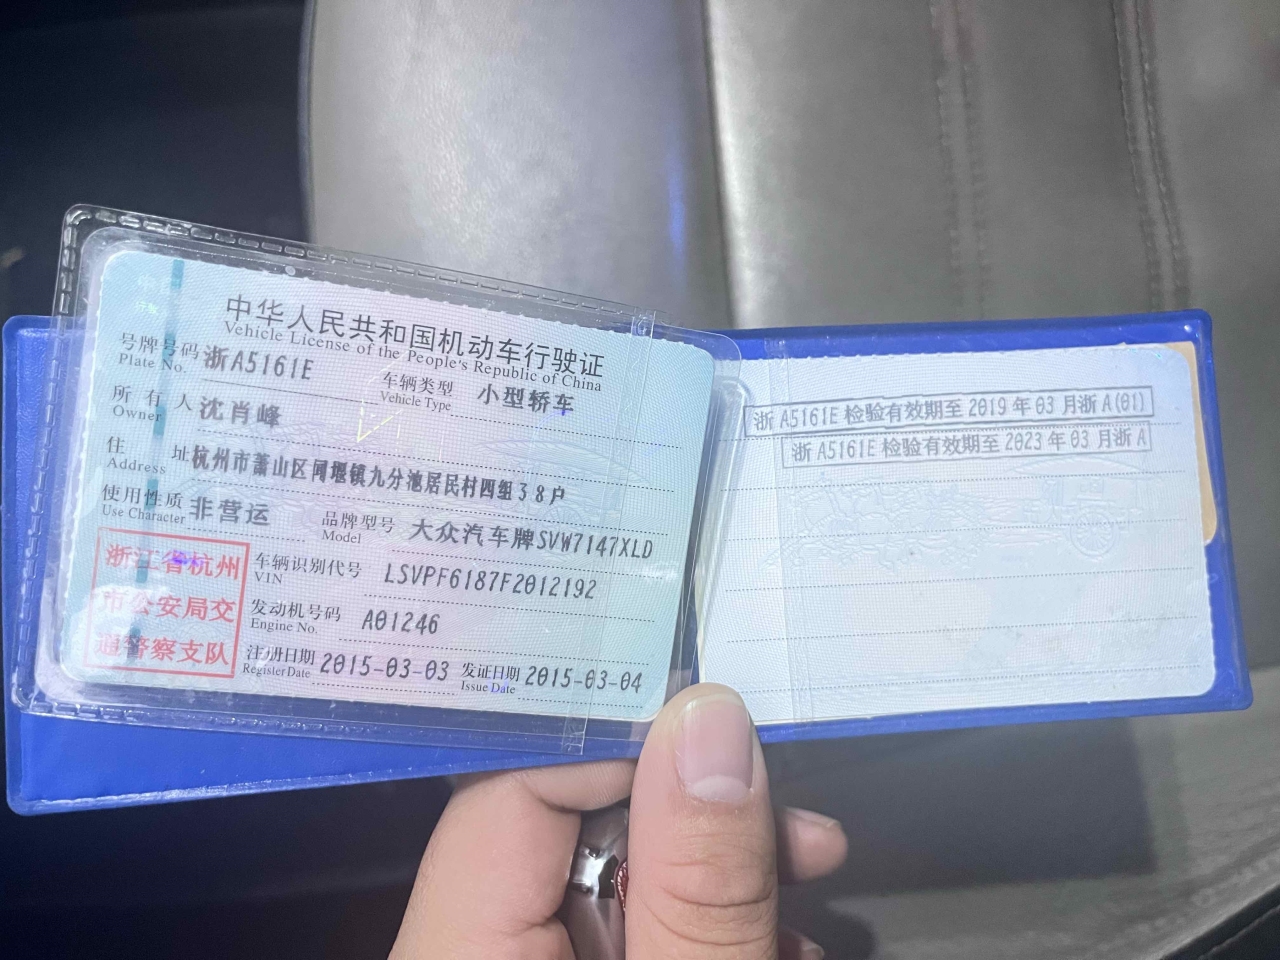 中华人民共和国机动车行驶证
Vehicle License of the People's Republic of China
号牌号码 浙A5161E 车辆类型 小型轿车
Plate No. Vehicle Type
所有人 沈肖峰
Owner
住址 杭州市萧山区闻堰镇九分池居民村四组38户
Address
使用性质 非营运 品牌型号 大众汽车牌SVW7147XLD
Use Character Model
浙江省杭州
市公安局交
通警察支队
车辆识别代号 LSVPF6187F2012192
VIN
发动机号码 A01246
Engine No.
注册日期 2015-03-03 发证日期 2015-03-04
Register Date Issue Date
浙 A5161E 检验有效期至 2019 年 03 月浙 A(01)
浙 A5161E 检验有效期至 2023 年 03 月浙 A